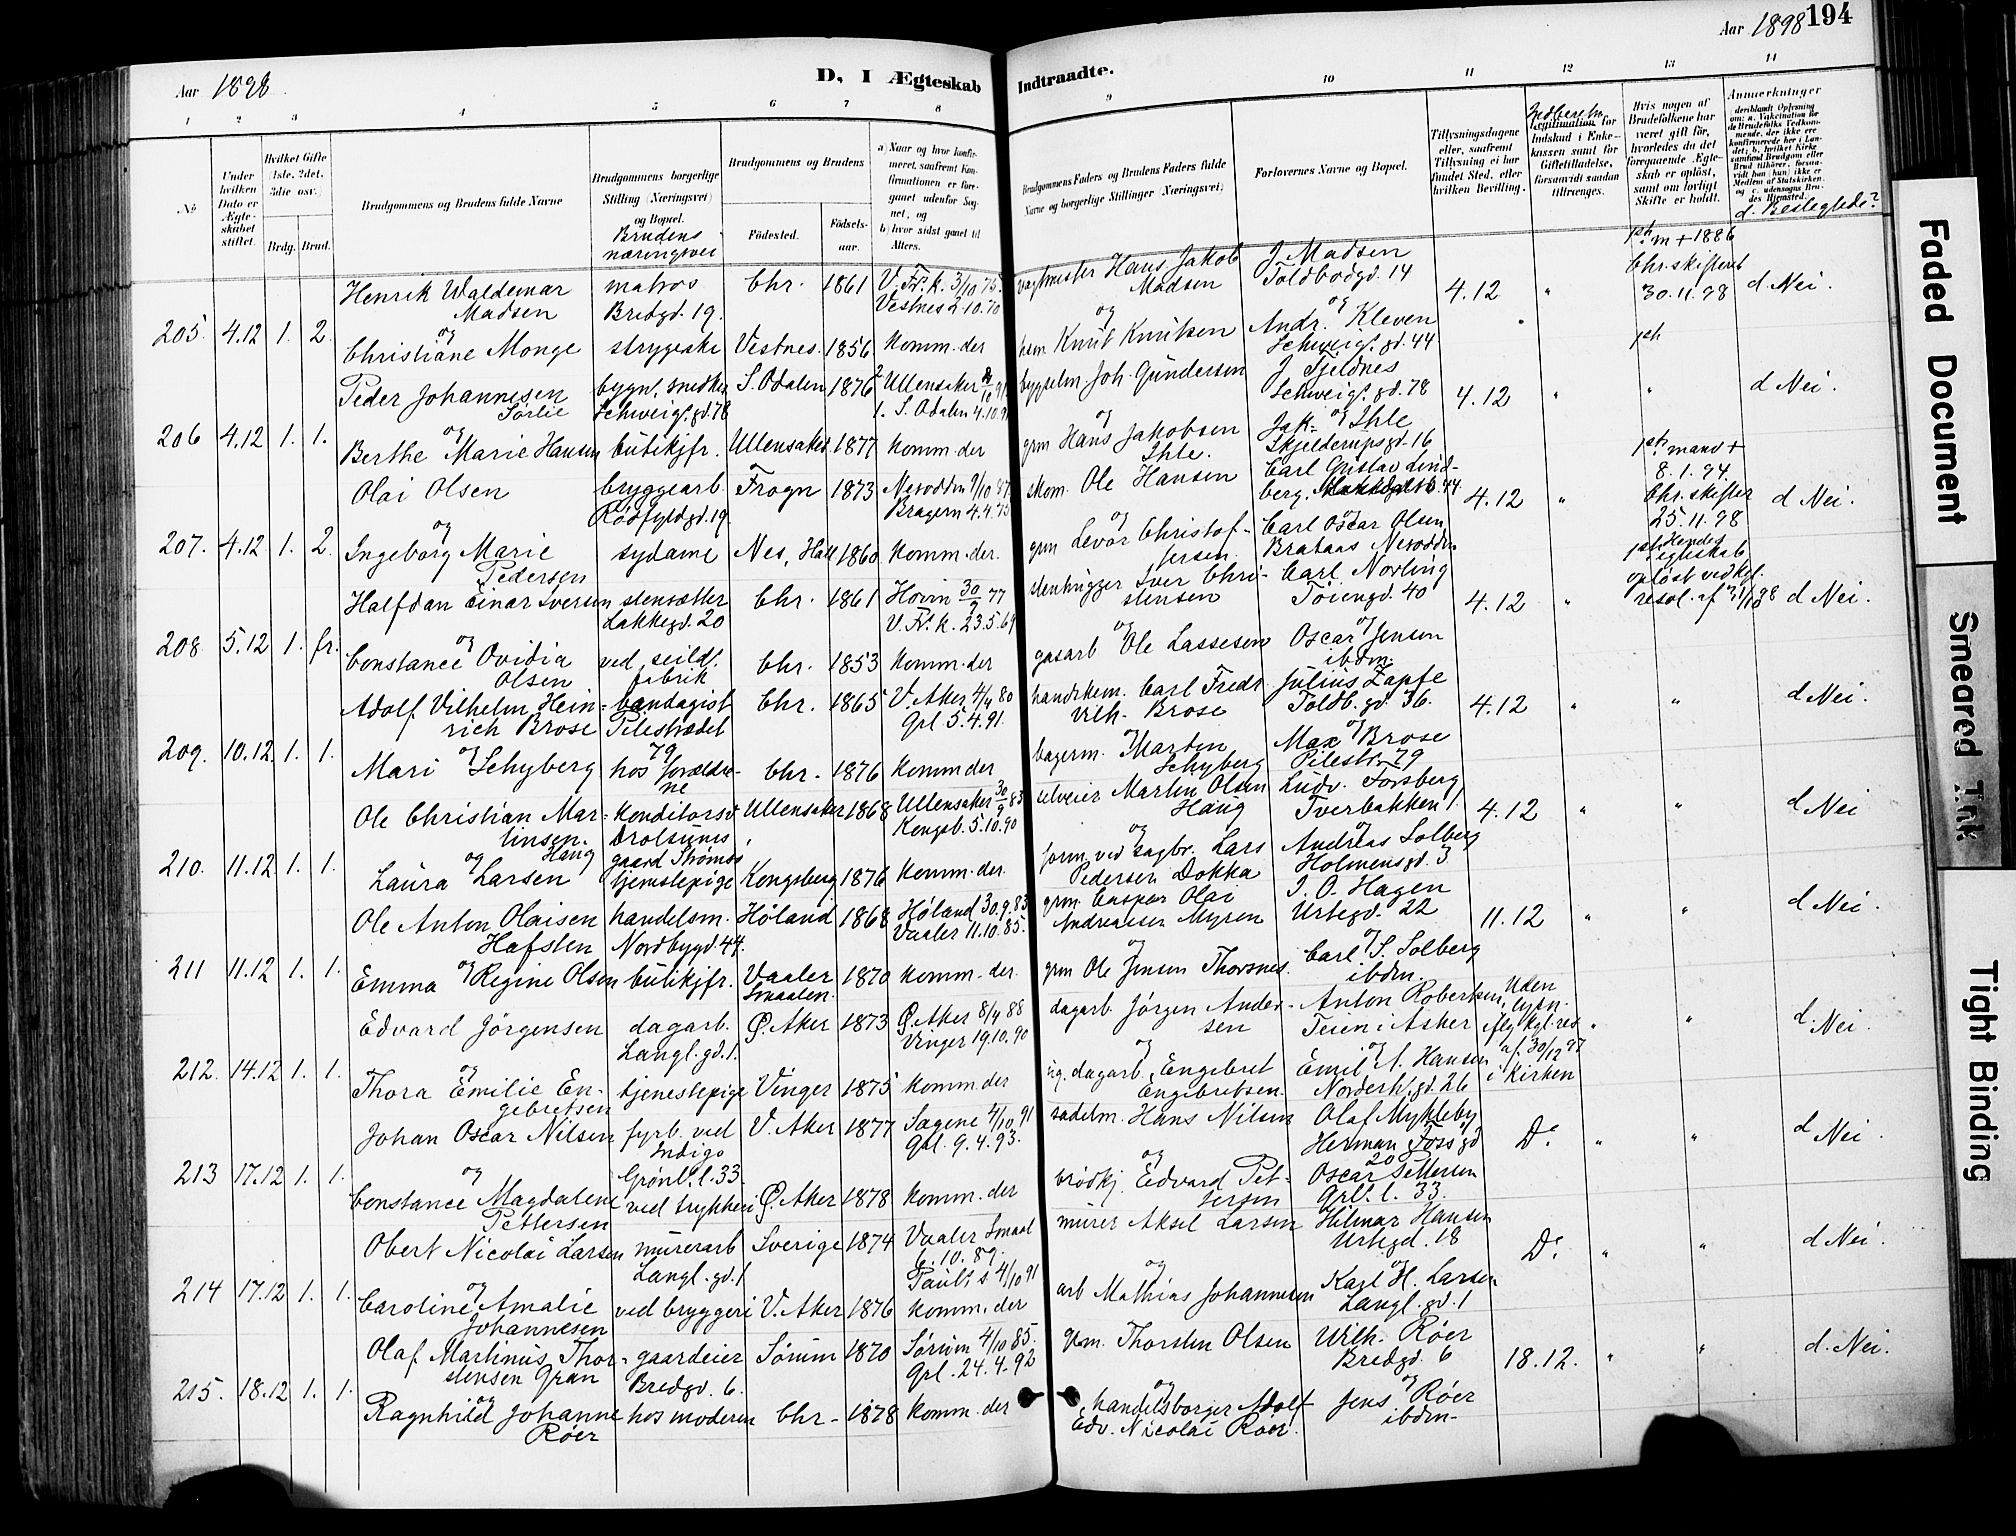 Aar 1898.
D, I Ægteskab Indtraadte.
Aar 1898 194
1 2 3 4 5 6 7 8 9 10 11 12 13 14
No
Under hvilken Dato er Ægteskabet stiftet.
Hvilket Gifte (1ste, 2det, 3die osv.)
Brdg. Brud.
Brudgommens og Brudens fulde Navne
Brudgommens borgerlige Stilling (Næringsvei) og Bopæl.
Brudens næringsvei
Brudgommens og Brudens
Födested. Födselsaar.
a) Naar og hvor konfirmeret, saafremt Konfirmationen er foregaaet udenfor Sognet, og
b) hvor sidst gaaet til Alters.
Brudgommens Faders og Brudens Faders fulde Navne og borgerlige Stillinger (Næringsvei)
Forlovernes Navne og Bopæl.
Tillysningsdagene eller, saafremt Tillysning ei har fundet Sted, efter hvilken Bevilling.
Legitimation for Indskud i Enkekassen samt for Giftetilladelse, forsaavidt saadan tiltrænges.
Hvis nogen af Brudefolkene har været gift før, hvorledes da det foregaaende Ægteskab er opløst, samt om lovligt Skifte er holdt.
Anmærkninger
d. Beslegtede?
205. 4.12 1. 2.
Henrik Waldemar Madsen matros Bredgd. 19. Chr. 1861 V. Fr. k. 3/10 75. Vestnes 2.10.70
vagtmester Hans Jakob Madsen J. Madsen Toldbodgd. 14 4.12 " m + 1886 Chr. skifteret 30.11.98 d Nei.
og
Christiane Monge strygeske Vestnes 1856 komm. der
hsm. Knut Knutsen Andr. Kleven Schweigs. gd. 44
206 4.12 1. 1.
Peder Johannesen Sørlie bygn. snedker Schweigs. gd. 78 S. Odalen 1876 Ullensaker 1. S. Odalen
bygselm Joh. Gundersen J. Fjeldnes Schweigs. gd. 78 4.12 " " d Nei.
og
Berthe Marie Hansen butikjfr. Ullensaker 1877 komm. der
grm Hans Jakobsen Ihle. Jak. Ihle Skjelderupsgd. 16
207. 4.12 1. 2.
Olai Olsen bryggearb. Rødfyldgd. 19. Frogn 1873 Nesodden Bragern
skom. Ole Hansen Carl Gustav Lindberg, 44 4.12 " mand + 8.1.94. Chr. skifter 25.11.98 d Nei.
og
Ingeborg Marie Pedersen sydame Nes, Hall 1860 komm. der.
grm Levor Christoffersen Carl Oscar Olsen Brataas Nesodden
208. 5.12 1. fr.
Halfdan Einar Iversen stensætter Lakkegd. 20 Chr. 1861 Hovin 30/9 77 V. Fr. k. 23.5.69
stenhugger Iver Christensen Carl Norling Töiengd. 40 4.12 " Hendes egteskab opløst ved kgl. resol. af d Nei.
og
Constance Ovidia Olsen ved seild. fabrik Chr. 1853 komm. der
gasarb Ole Lassesen Oscar Jensen ibdm.
209. 10.12. 1. 1.
Adolf Vilhelm Heinrich Brose bandagist Pilestrædet 79 Chr. 1865 V. Aker 4/4 80 Grl. 5.4.91.
handskem. Carl Fredr. Vilh. Brose Julius Zapfe Toldb. gd. 36. 4.12 " " d Nei.
og
Mari Schyberg hos forældrene Chr. 1876 komm der
bagerm. Martin Schyberg Max Brose Pilestr. 79
210. 11.12. 1. 1.
Ole Christian Martinsen Haug Ullensaker 1868 Ullensaker 30/9 83 Kongsb. 5.10.90
selveier Martin Olsen Haug Ludv. Forsberg Tverbakken 1. 4.12 " " d Nei
og
Laura Larsen tjenstepige Kongsberg 1876 komm. der.
form. ved sagbr. Lars Pedersen Dokka Andreas Solberg Holmensgd. 3
211 11.12 1. 1.
Ole Anton Olaisen Hafsten handelsm. Nordbygd. 44. Høland 1868 Høland 30.9.83 Vaaler 11.10.85.
grm. Caspar Olai Andreassen Myren I. O. Hagen Urtegd. 22 11.12 " " d Nei.
og
Emma Regine Olsen butikjfr. Vaaler Smaalen. 1870 komm. der.
grm Ole Jensen Thorsnes. Carl S. Solberg ibdm.
212. 14.12 1. 1.
Edvard Jörgensen dagarb. Langl. gd. 1. Ø. Aker 1873 Ø. Aker 8/4 88 Vinger 19.10.90
dagarb. Jörgen Andersen Anton Robertsen, Teien i Asker Uden lysn. iflg kgl. res af 30/12 97 i kirken " " d. Nei.
og
Thora Emilie Engebretsen tjenestepige Vinger 1875 komm. der
dagarb. Engebret Engebretsen Emil A. Hansen Norderh. gd. 26
213 17.12 1. 1.
Johan Oscar Nilsen fyrb. ved Indigo Grønl. l. 33. V. Aker 1877 Sagene 4/10 91 Grl. 9.4.93.
sadelm. Hans Nilsen Olaf Mykleby Herman Foss gd 20 Do " " d Nei.
og
Constance Magdalene Pettersen ved trykkeri Ø. Aker 1878 komm. der
brödkj. Edvard Pettersen Oscar Pettersen Grl. l. 33.
214 17.12 1. 1.
Obert Nicolai Larsen murerarb Langl. gd. 1 Sverige 1874 Vaaler Smaal 6.10.89. Pauli s 4/10 91
murer Aksel Larsen Hilmar Hansen Urtegd. 18 Do " " d Nei.
og
Caroline Amalie Johannesen ved bryggeri V. Aker 1876 komm. der
arb Mathias Johannesen Karl H. Larsen Langl. gd. 1
215. 18.12 1. 1.
Olaf Martinus Thorstensen Gran gaardeier Bredgd. 6. Sörum 1870 Sörum 4/10 85. Grl. 24.4.92
grm. Thorsten Olsen Wilh. Röer Bredgd. 6 18.12. " " d. Nei.
og
Ragnhild Johanne Röer hos moderen Chr. 1878 komm. der
handelsborger Adolf Edv. Nicolai Röer. Jens Röer ibdm.
Faded Document
Smeared Ink
Tight Binding